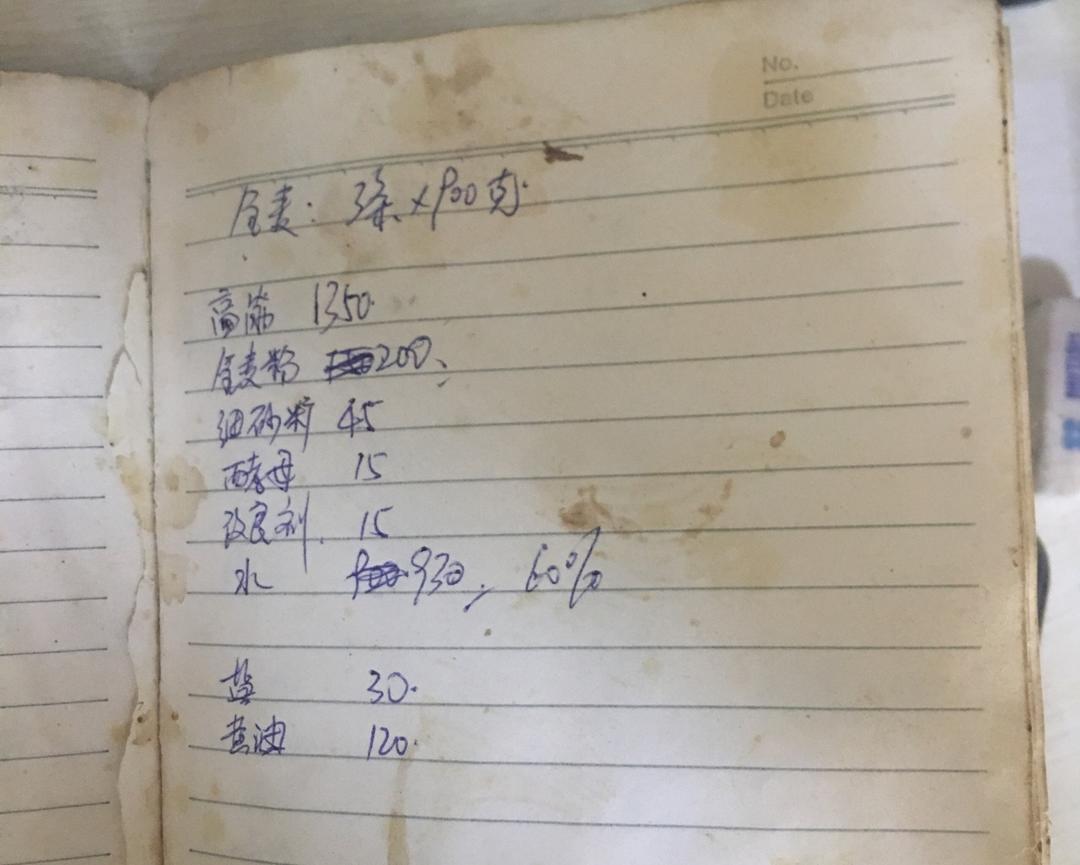 No.
Date
全麦: 3条×900克
高筋 1350
全麦粉 200、
细砂糖 45
酵母 15
改良剂. 15
水 930, 60%
盐 30
黄油 120